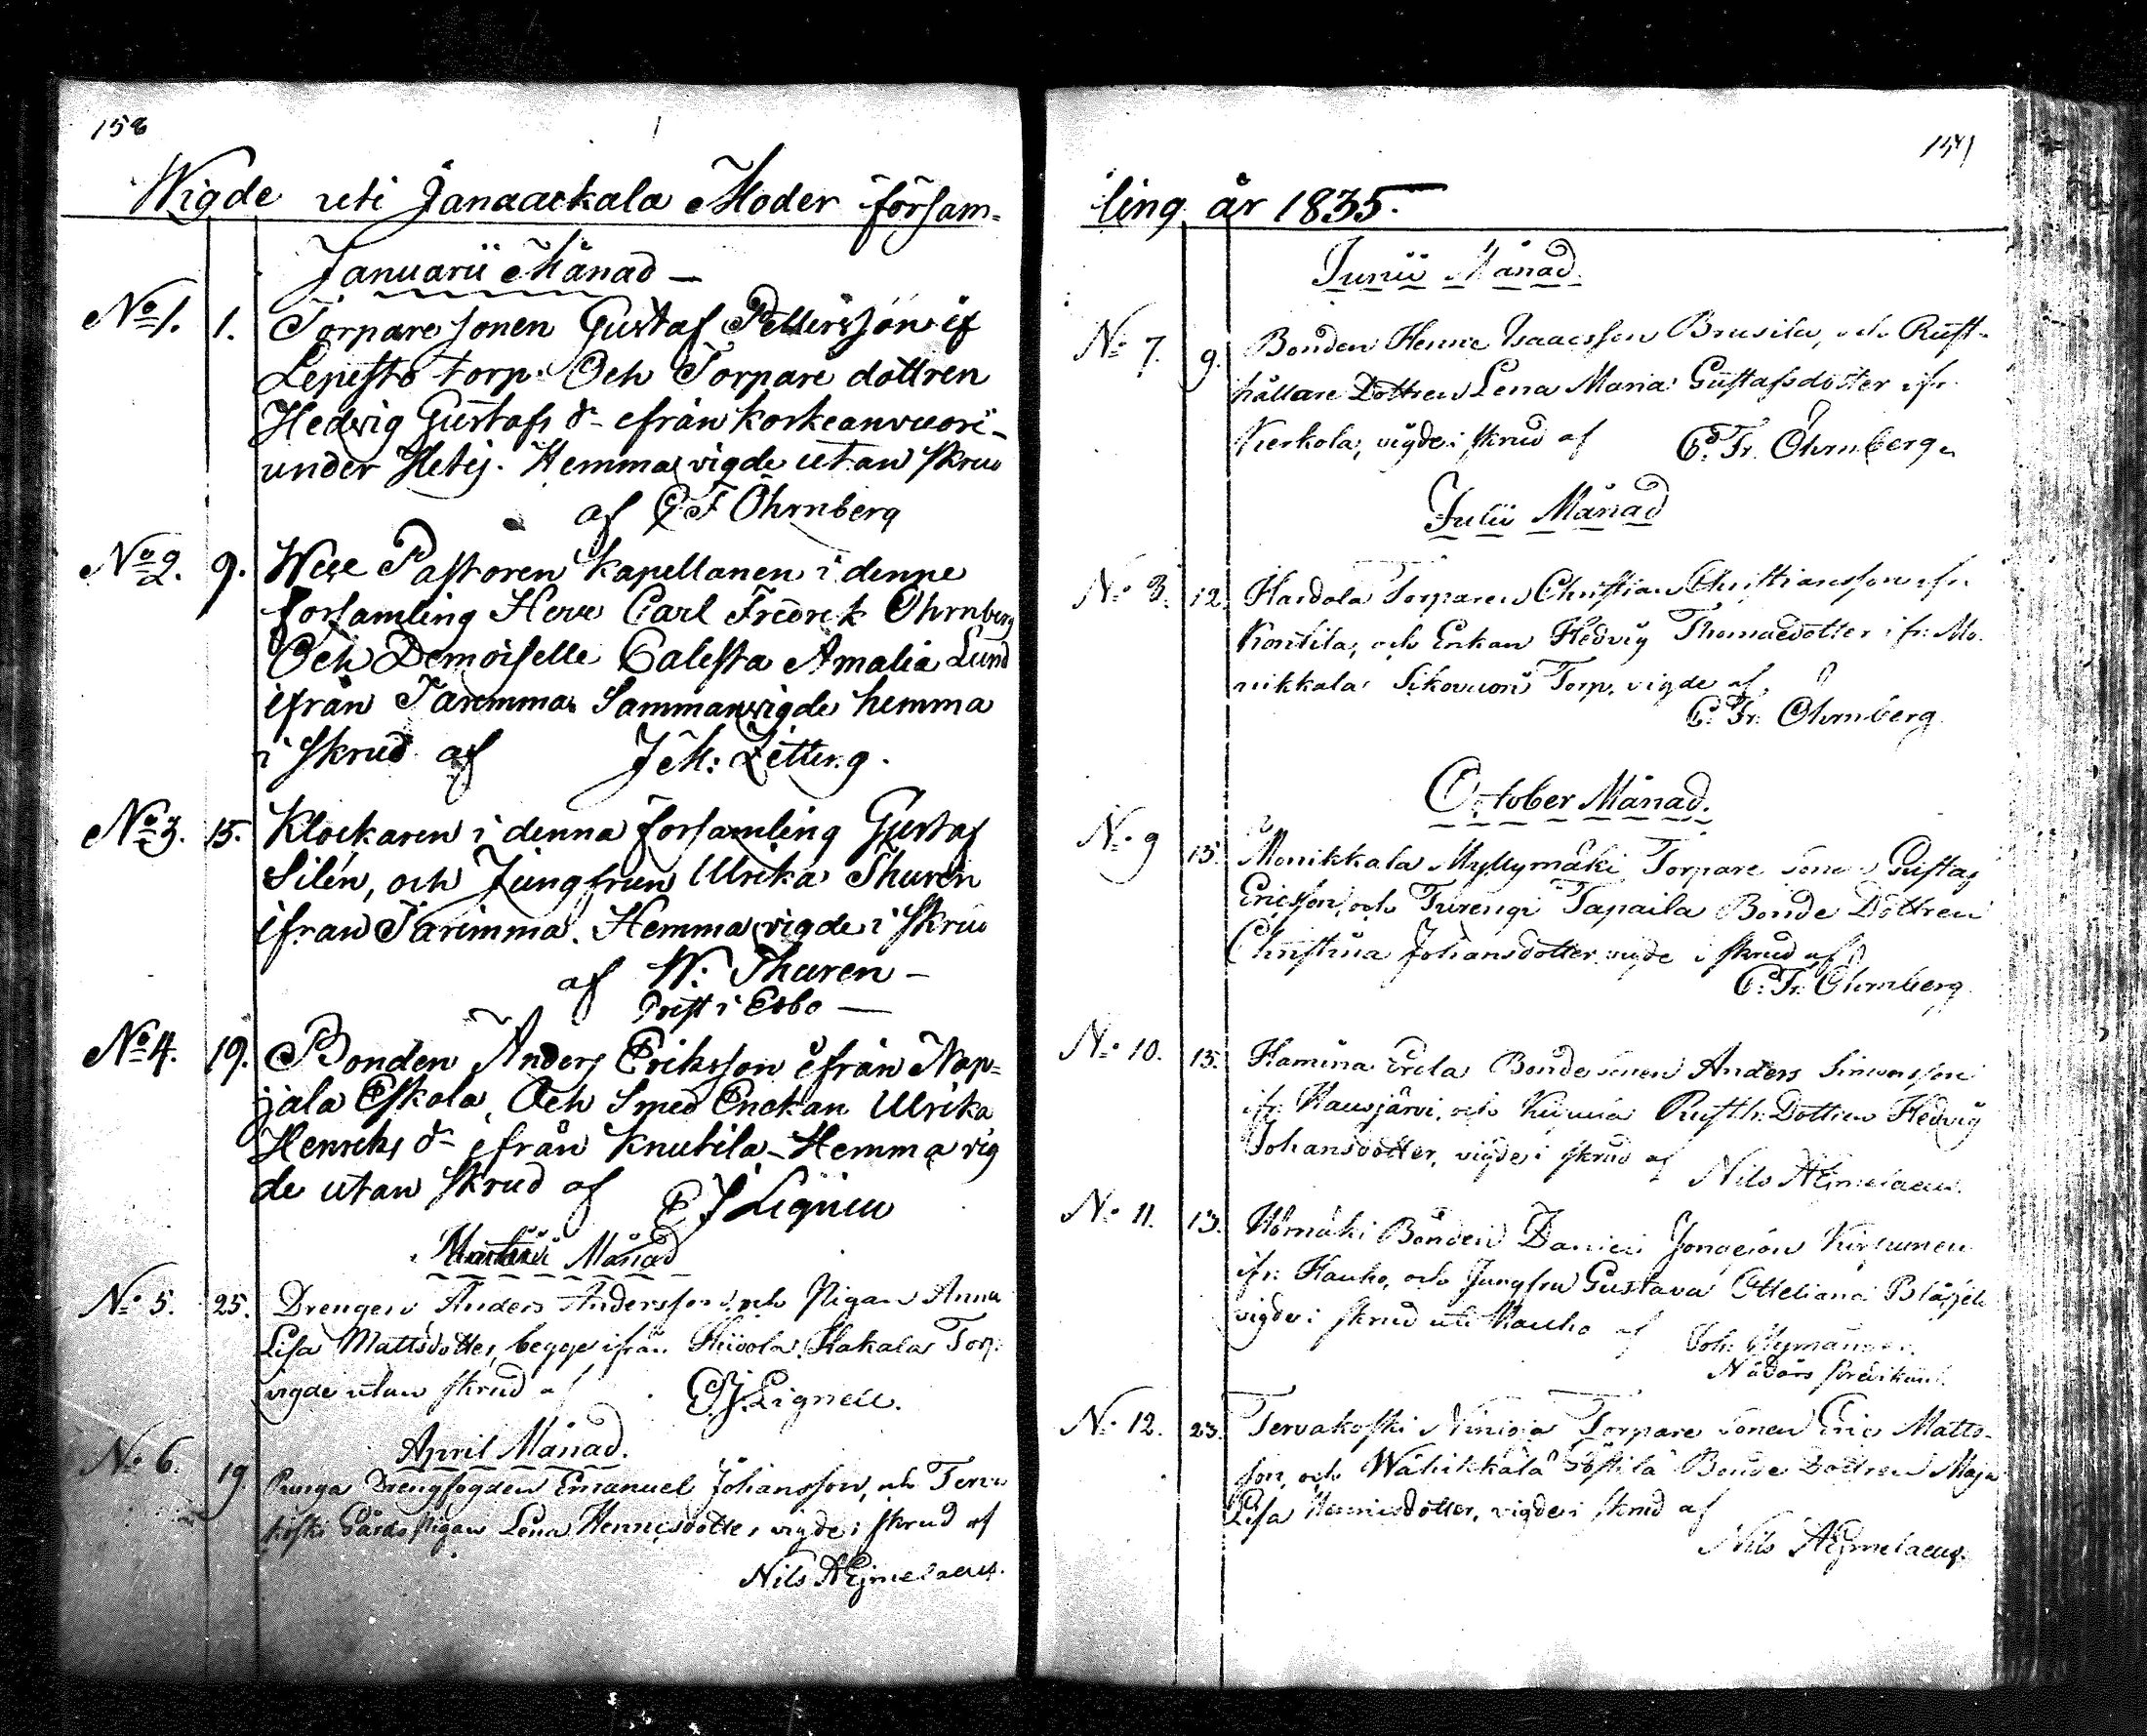 158
Wigde uti Janaackala Moder försam-
Januarii Månad —
No 1. 1. Torpare sonen Gustaf Pettersson if
Lepistö torp. Och Torpare dottren
Hedvig Gustafs dr ifrån Korkeanvuori
under Hetij. Hemma vigde utan skrud
af C F Öhrnberg
No 2. 9. Wice Pastoren Kapellanen i denne
församling Herr Carl Fredrek Öhrnberg
Och Demoiselle Calesta Amalia Lund
ifrån Tarimma Sammanvigde hemma
i skrud af
No 3. 15. Klockaren i denna församling Gustaf
Silén, och Jungfrun Ulrika Thurén
ifran Tarimma. Hemma vigde i skrud
af W. Thuren —
Prest i Esbo —
No 4. 19. Bonden Anders Eriksson ifrån Nap-
jala Eskola, Och Smed Enckan Ulrika
Henriks dr ifrån Knutila - Hemma vig
de utan skrud af E J Lignell
Månad
No 5. 25. Drengen Anders Andersson och Pigan Anna
Lisa Mattsdotter, begge ifrån Hakala Torp.
vigde utan skrud af E. J. Lignell.
April Månad.
No 6. 19. Drengfogden Emanuel Johansson, och Terva
koski Gårds pigan Lena Henricsdotter, vigde i skrud af
Nils Aejmelaeus.
ling år 1835.
Junii Månad.
No 7. 9. Bonden Henric Isaacsson Brusila, och Rust-
hållare Dottren Lena Maria Gustafsdotter ifr.
Kerkola, vigde i skrud af C. Fr. Öhrnberg.
Julii Månad
No 8. 12. Torparen Christian Christiansson ifr.
Konttila, och Enkan Hedvig Thomasdotter ifr. Mo-
nikkala Sikovuori Torp, vigde af
C. Fr. Öhrnberg.
October Månad.
No 9 15. Monikkala Myllymäki Torpare sonen Gustaf
Ericsson, och Turengi Tapaila Bonde Dottren
Christina Johansdotter vigde i skrud af
C. Fr. Öhrnberg.
No 10. 15. Bonde sonen Anders Simonsson
ifr. Hausjärvi, och Rusth. Dottren Hedvig
Johansdotter, vigde i skrud af Nils Aejmelaeus.
No 11. 13. Bonden
ifr. Hauho, och Jungfru Gustava
vigde i skrud uti Hauho af Joh.
Nådårs predikant.
No 12. 23. Tervakoski Torpare sonen Eric Matts-
son, och Wähikkälä Bonde Dottren Maja
Lisa Henricsdotter, vigde i skrud af
Nils Aejmelaeus.